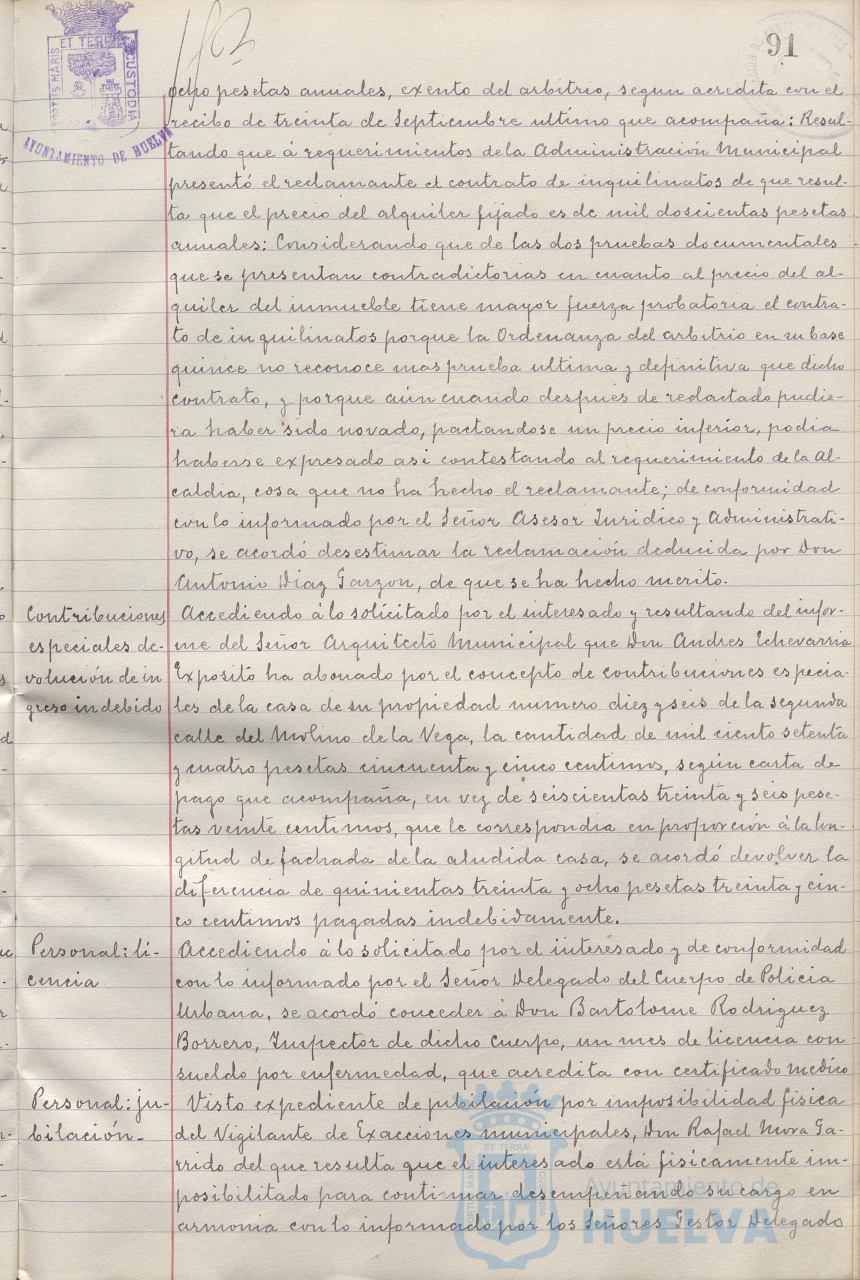 91
PORTUS MARIS ET TERRE CUSTODIA
AYUNTAMIENTO DE HUELVA
ocho pesetas anuales, exento del arbitrio, segun acredita con el
recibo de treinta de Septiembre ultimo que acompaña: Resul-
tando que á requerimientos dela Administración Municipal
presentó el reclamante el contrato de inquilinatos de que resul-
ta que el precio del alquiler fijado es de mil doscientas pesetas
anuales: Considerando que de las dos pruebas documentales
que se presentan contradictorias en cuanto al precio del al-
quiler del inmueble tiene mayor fuerza probatoria el contra-
to de inquilinatos porque la Ordenanza del arbitrio en su base
quince no reconoce mas prueba ultima y definitiva que dicho
contrato, y porque aún cuando después de redactado pudie-
ra haber sido novado, pactandose un precio inferior, podia
haberse expresado asi contestando al requerimiento de la Al-
caldia, cosa que no ha hecho el reclamante; de conformidad
con lo informado por el Señor Asesor Juridico y Administrati-
vo, se acordó desestimar la reclamación deducida por Don
Antonio Diaz Garzon, de que se ha hecho merito.
Contribuciones
especiales de-
volución de in
greso indebido
Accediendo á lo solicitado por el interesado y resultando del infor-
me del Señor Arquitecto Municipal que Don Andres Echevarria
Exposito ha abonado por el concepto de contribuciones especia-
les de la casa de su propiedad numero diez y seis de la segunda
calle del Molino de la Vega, la cantidad de mil ciento setenta
y cuatro pesetas cincuenta y cinco centimos, según carta de
pago que acompaña, en vez de seiscientas treinta y seis pese-
tas veinte centimos, que le correspondia en proporción á la lon-
gitud de fachada de la aludida casa, se acordó devolver la
diferencia de quinientas treinta y ocho pesetas treinta y cin-
co centimos pagadas indebidamente.
Personal: li-
cencia
Accediendo á lo solicitado por el interesado y de conformidad
con lo informado por el Señor Delegado del Cuerpo de Policia
Urbana, se acordó conceder á Don Bartolome Rodriguez
Borrero, Inspector de dicho Cuerpo, un mes de licencia con
sueldo por enfermedad, que acredita con certificado medico
Personal: ju-
bilación.-
Visto expediente de jubilación por imposibilidad fisica
del Vigilante de Exacciones municipales, Don Rafael Mora Ga-
rrido del que resulta que el interesado está fisicamente im-
posibilitado para continuar desempeñando su cargo en
armonia con lo informado por los Señores Gestor Delegado
Ayuntamiento de
HUELVA